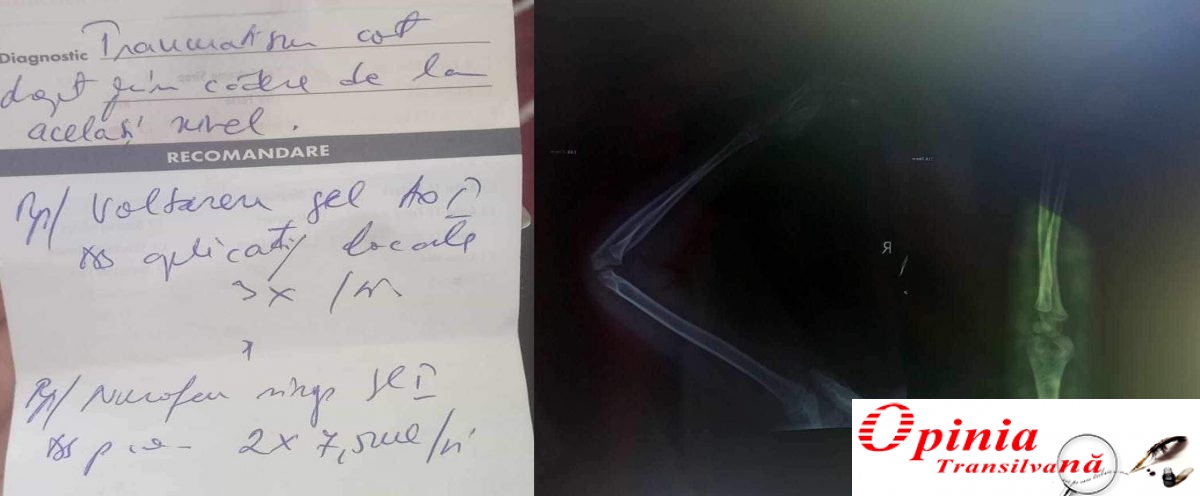 Diagnostic Traumatism cot
drept prin cădere de la
același nivel.
RECOMANDARE
Rp/ Voltaren gel No I
aplicații locale
3x /zi
Rp/ Nurofen sirop I
2x 7,5ml/zi
R
Opinia
Transilvană